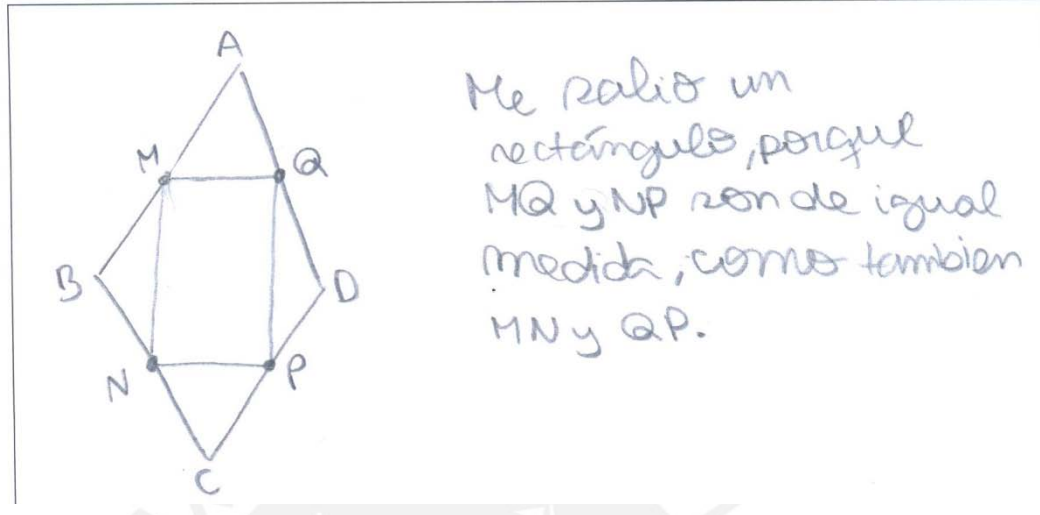 A
M
Q
B
D
N
P
C
Me salio un
rectángulo, porque
MQ y NP son de igual
medida, como tambien
MN y QP.